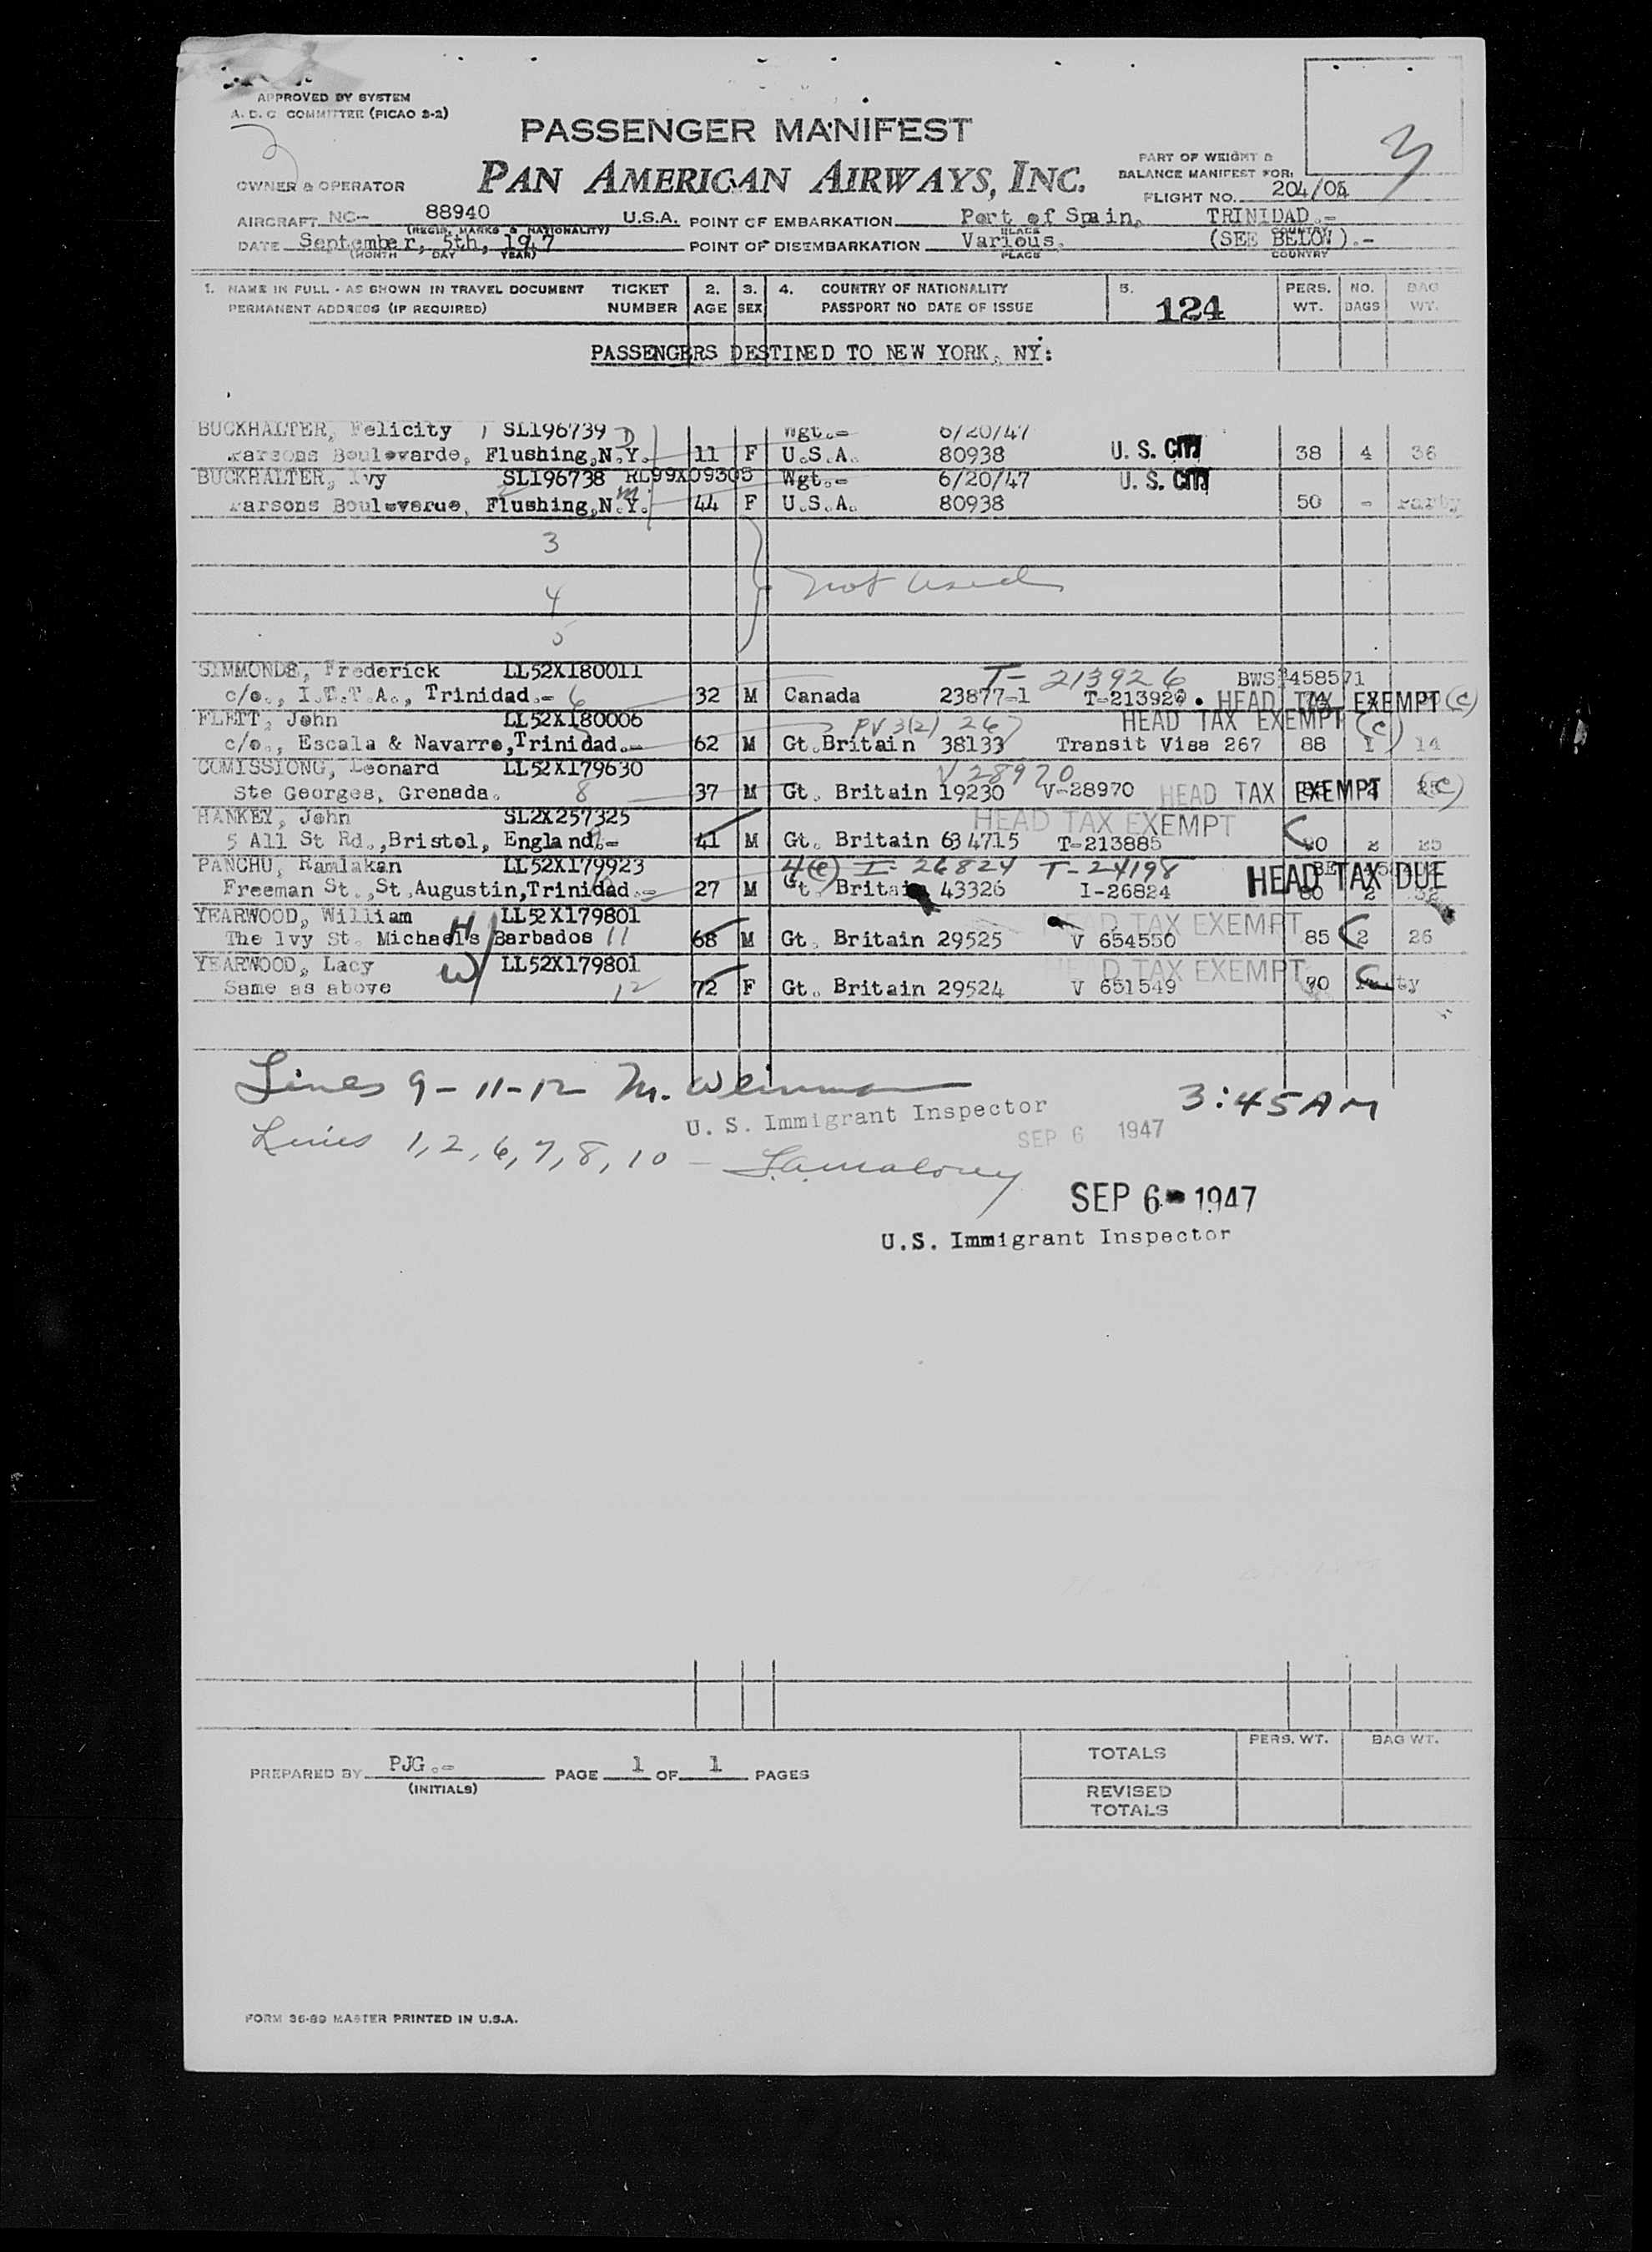 APPROVED BY SYSTEM
A. D. C. COMMITTEE (PICAO 2-2)
PASSENGER MANIFEST
3
OWNER & OPERATOR
PAN AMERICAN AIRWAYS, INC.
PART OF WEIGHT &
BALANCE MANIFEST FOR:
FLIGHT NO. 204/05
AIRCRAFT NC- 88940 U.S.A. POINT OF EMBARKATION Port of Spain, TRINIDAD.-
(REGIS. MARKS & NATIONALITY) PLACE COUNTRY
DATE September, 5th, 1947 POINT OF DISEMBARKATION Various. (SEE BELOW).-
(MONTH DAY YEAR) PLACE COUNTRY
1. NAME IN FULL - AS SHOWN IN TRAVEL DOCUMENT TICKET 2. 3. 4. COUNTRY OF NATIONALITY 5. 124 PERS. NO. BAG
PERMANENT ADDRESS (IF REQUIRED) NUMBER AGE SEX PASSPORT NO DATE OF ISSUE WT. BAGS WT.
PASSENGERS DESTINED TO NEW YORK, NY:
BUCKHALTER, Felicity 1 SL196739 Wgt.- 6/20/47
Parsons Boulevarde, Flushing,N.Y. 11 F U.S.A. 80938 U. S. CIT 38 4 36
BUCKHALTER, Ivy SL196738 RL99X09305 Wgt.- 6/20/47 U. S. CIT
Parsons Boulevarde, Flushing,N.Y. 44 F U.S.A. 80938 50 - Party
3
4 not used
5
SIMMONDS, Frederick LL52X180011 T- 213926 BWS 458571
c/o., I.T.T.A., Trinidad.- 6 32 M Canada 23877-1 T-213926 HEAD TAX EXEMPT (C)
FLETT, John LL52X180006 PV 3(2) 267 HEAD TAX EXEMPT (C)
c/o., Escala & Navarro,Trinidad.- 62 M Gt.Britain 38133 Transit Visa 267 88 1 14
COMISSIONG, Leonard LL52X179630 V 28970
Ste Georges, Grenada. 8 37 M Gt. Britain 19230 V-28970 HEAD TAX EXEMPT (C)
HANKEY, John SL2X257325 HEAD TAX EXEMPT
5 All St Rd.,Bristol, England.- 41 M Gt. Britain 634715 T-213885
PANCHU, Ramlakan LL52X179923 4(e) I- 26824 T-24198
Freeman St.,St.Augustin,Trinidad.- 27 M Gt. Britain 43326 I-26824 HEAD TAX DUE
YEARWOOD, William H LL52X179801 HEAD TAX EXEMPT
The Ivy St. Michaels Barbados 11 68 M Gt. Britain 29525 V 654550 85 2 26
YEARWOOD, Lacy W LL52X179801 HEAD TAX EXEMPT
Same as above 12 72 F Gt. Britain 29524 V 651549 Party
Lines 9-11-12 M. Weinman 3:45AM
U. S. Immigrant Inspector
SEP 6 1947
Lines 1,2,6,7,8,10 -
SEP 6 1947
U.S. Immigrant Inspector
PREPARED BY PJG.- PAGE 1 OF 1 PAGES
(INITIALS)
PERS. WT. BAG WT.
TOTALS
REVISED
TOTALS
FORM 36-89 MASTER PRINTED IN U.S.A.